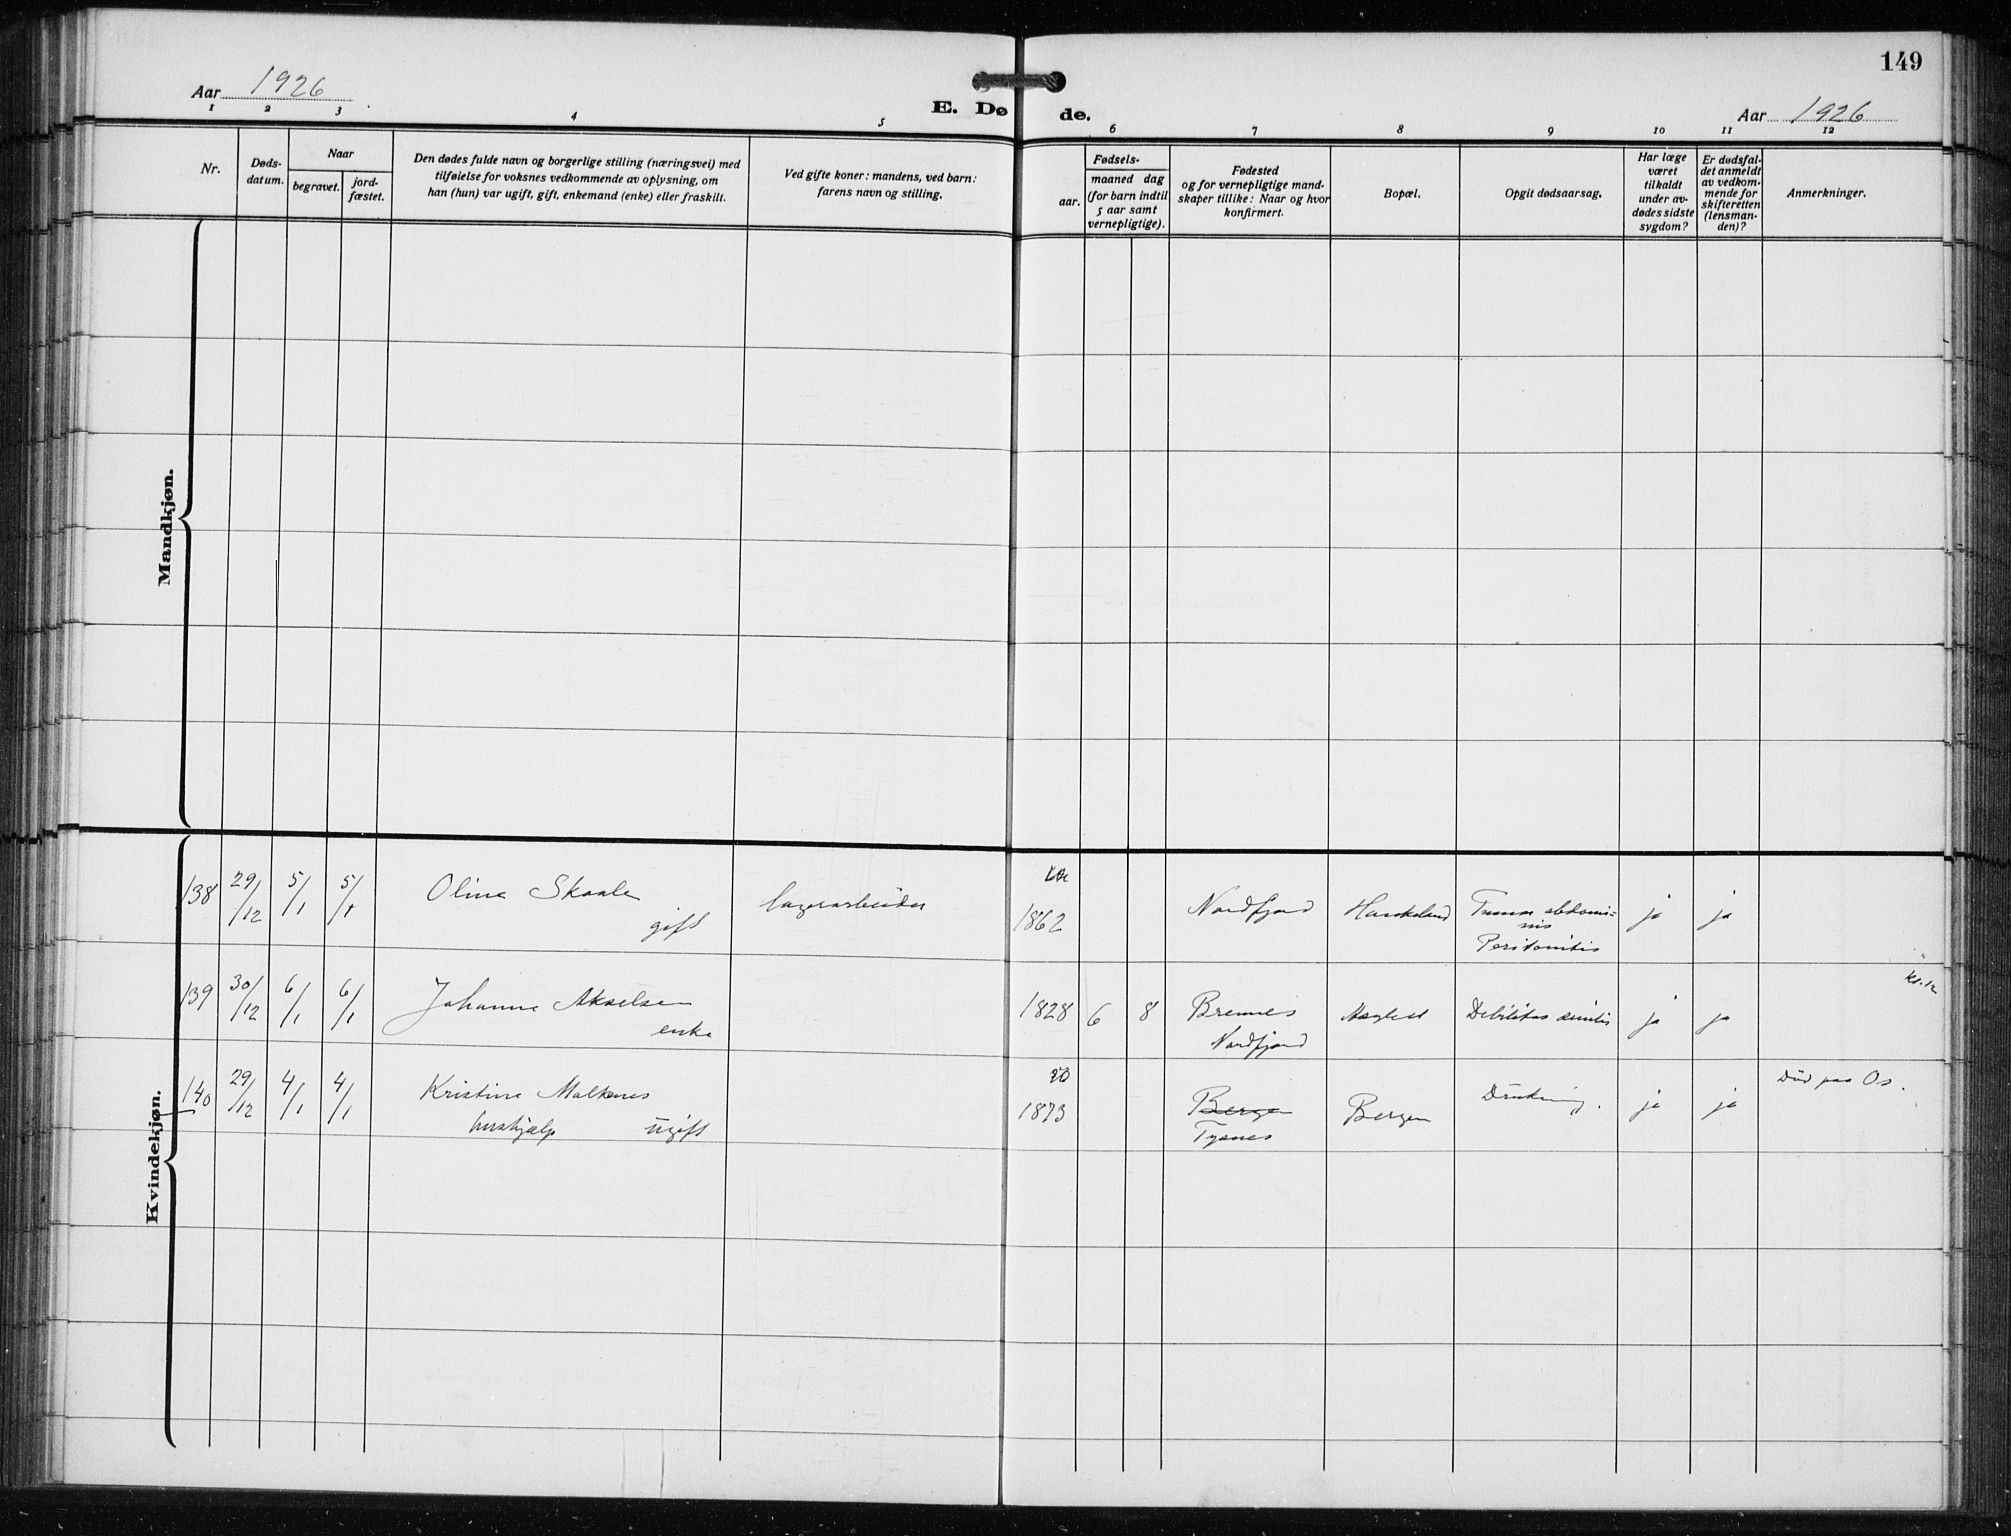 149
Aar 1926
E. Døde.
Aar 1926
1 2 3 4 5 6 7 8 9 10 11 12
Nr.
Døds-
datum.
Naar
begravet.
jord-
fæstet.
Den dødes fulde navn og borgerlige stilling (næringsvei) med
tilføielse for voksnes vedkommende av oplysning, om
han (hun) var ugift, gift, enkemand (enke) eller fraskilt.
Ved gifte koner: mandens, ved barn:
farens navn og stilling.
aar.
Fødsels-
maaned dag
(for barn indtil
5 aar samt
vernepligtige).
Fødested
og for vernepligtige mand-
skaper tillike: Naar og hvor
konfirmert.
Bopæl.
Opgit dødsaarsag.
Har læge
været
tilkaldt
under av-
dødes sidste
sygdom?
Er dødsfal-
det anmeldt
av vedkom-
mende for
skifteretten
(lensman-
den)?
Anmerkninger.
Mandkjøn.
Kvindekjøn.
138 29/12 5/1 5/1 Olina Skaale gift lagerarbeider 1862 Nordfjord Haukeland Tumor abdomi=
nis
Peritonitis ja ja
139 30/12 6/1 6/1 Johanne Akselsen enke 1828 6 8 Bremnes
Nordfjord Debilitas senilis ja ja kl. 12
140 29/12 4/1 4/1 Kristine Malkenes
hushjælp ugift 1873 Bergen
Tysnes Bergen Drukning. ja ja Død paa Os.